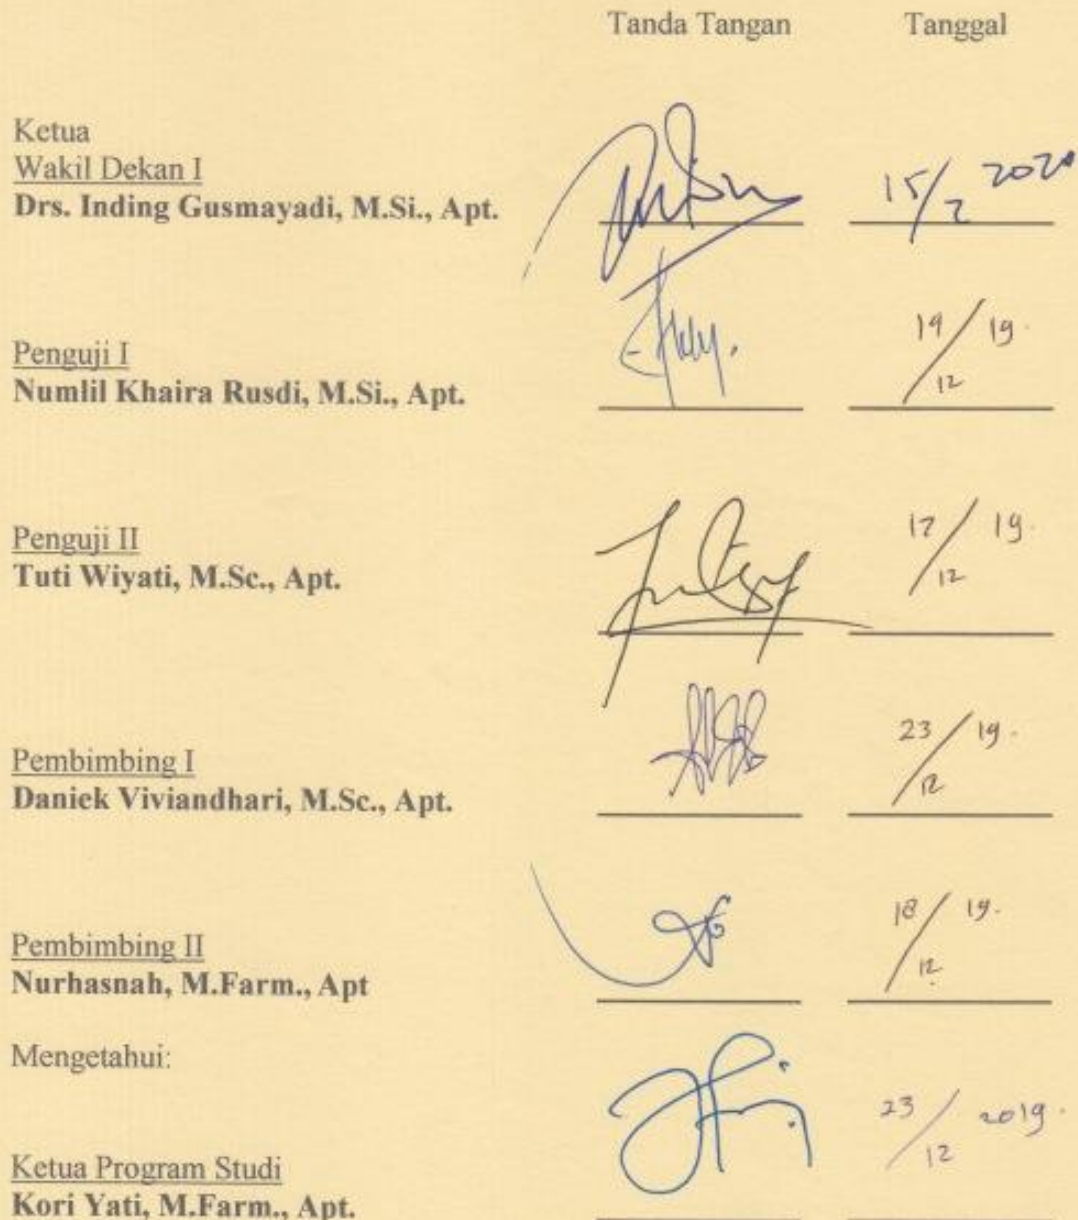 Tanda Tangan Tanggal
Ketua
Wakil Dekan I
Drs. Inding Gusmayadi, M.Si., Apt.
15/2 2020
Penguji I
Numlil Khaira Rusdi, M.Si., Apt.
19/12 19.
Penguji II
Tuti Wiyati, M.Sc., Apt.
17/12 19.
Pembimbing I
Daniek Viviandhari, M.Sc., Apt.
23/12 19.
Pembimbing II
Nurhasnah, M.Farm., Apt
18/12 19.
Mengetahui:
23/12 2019.
Ketua Program Studi
Kori Yati, M.Farm., Apt.